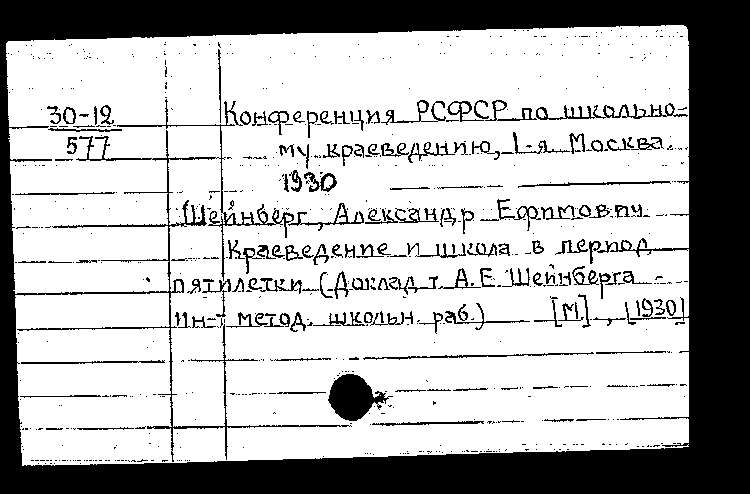 30-12
577
Конференция РСФСР по школьно-
му краеведению, 1-я. Москва.
1930
Шейнберг, Александр Ефимович
Краеведение и школа в период
пятилетки (Доклад т. А.Е. Шейнберга -
Ин-т метод. школьн. раб.) [М.], [1930]